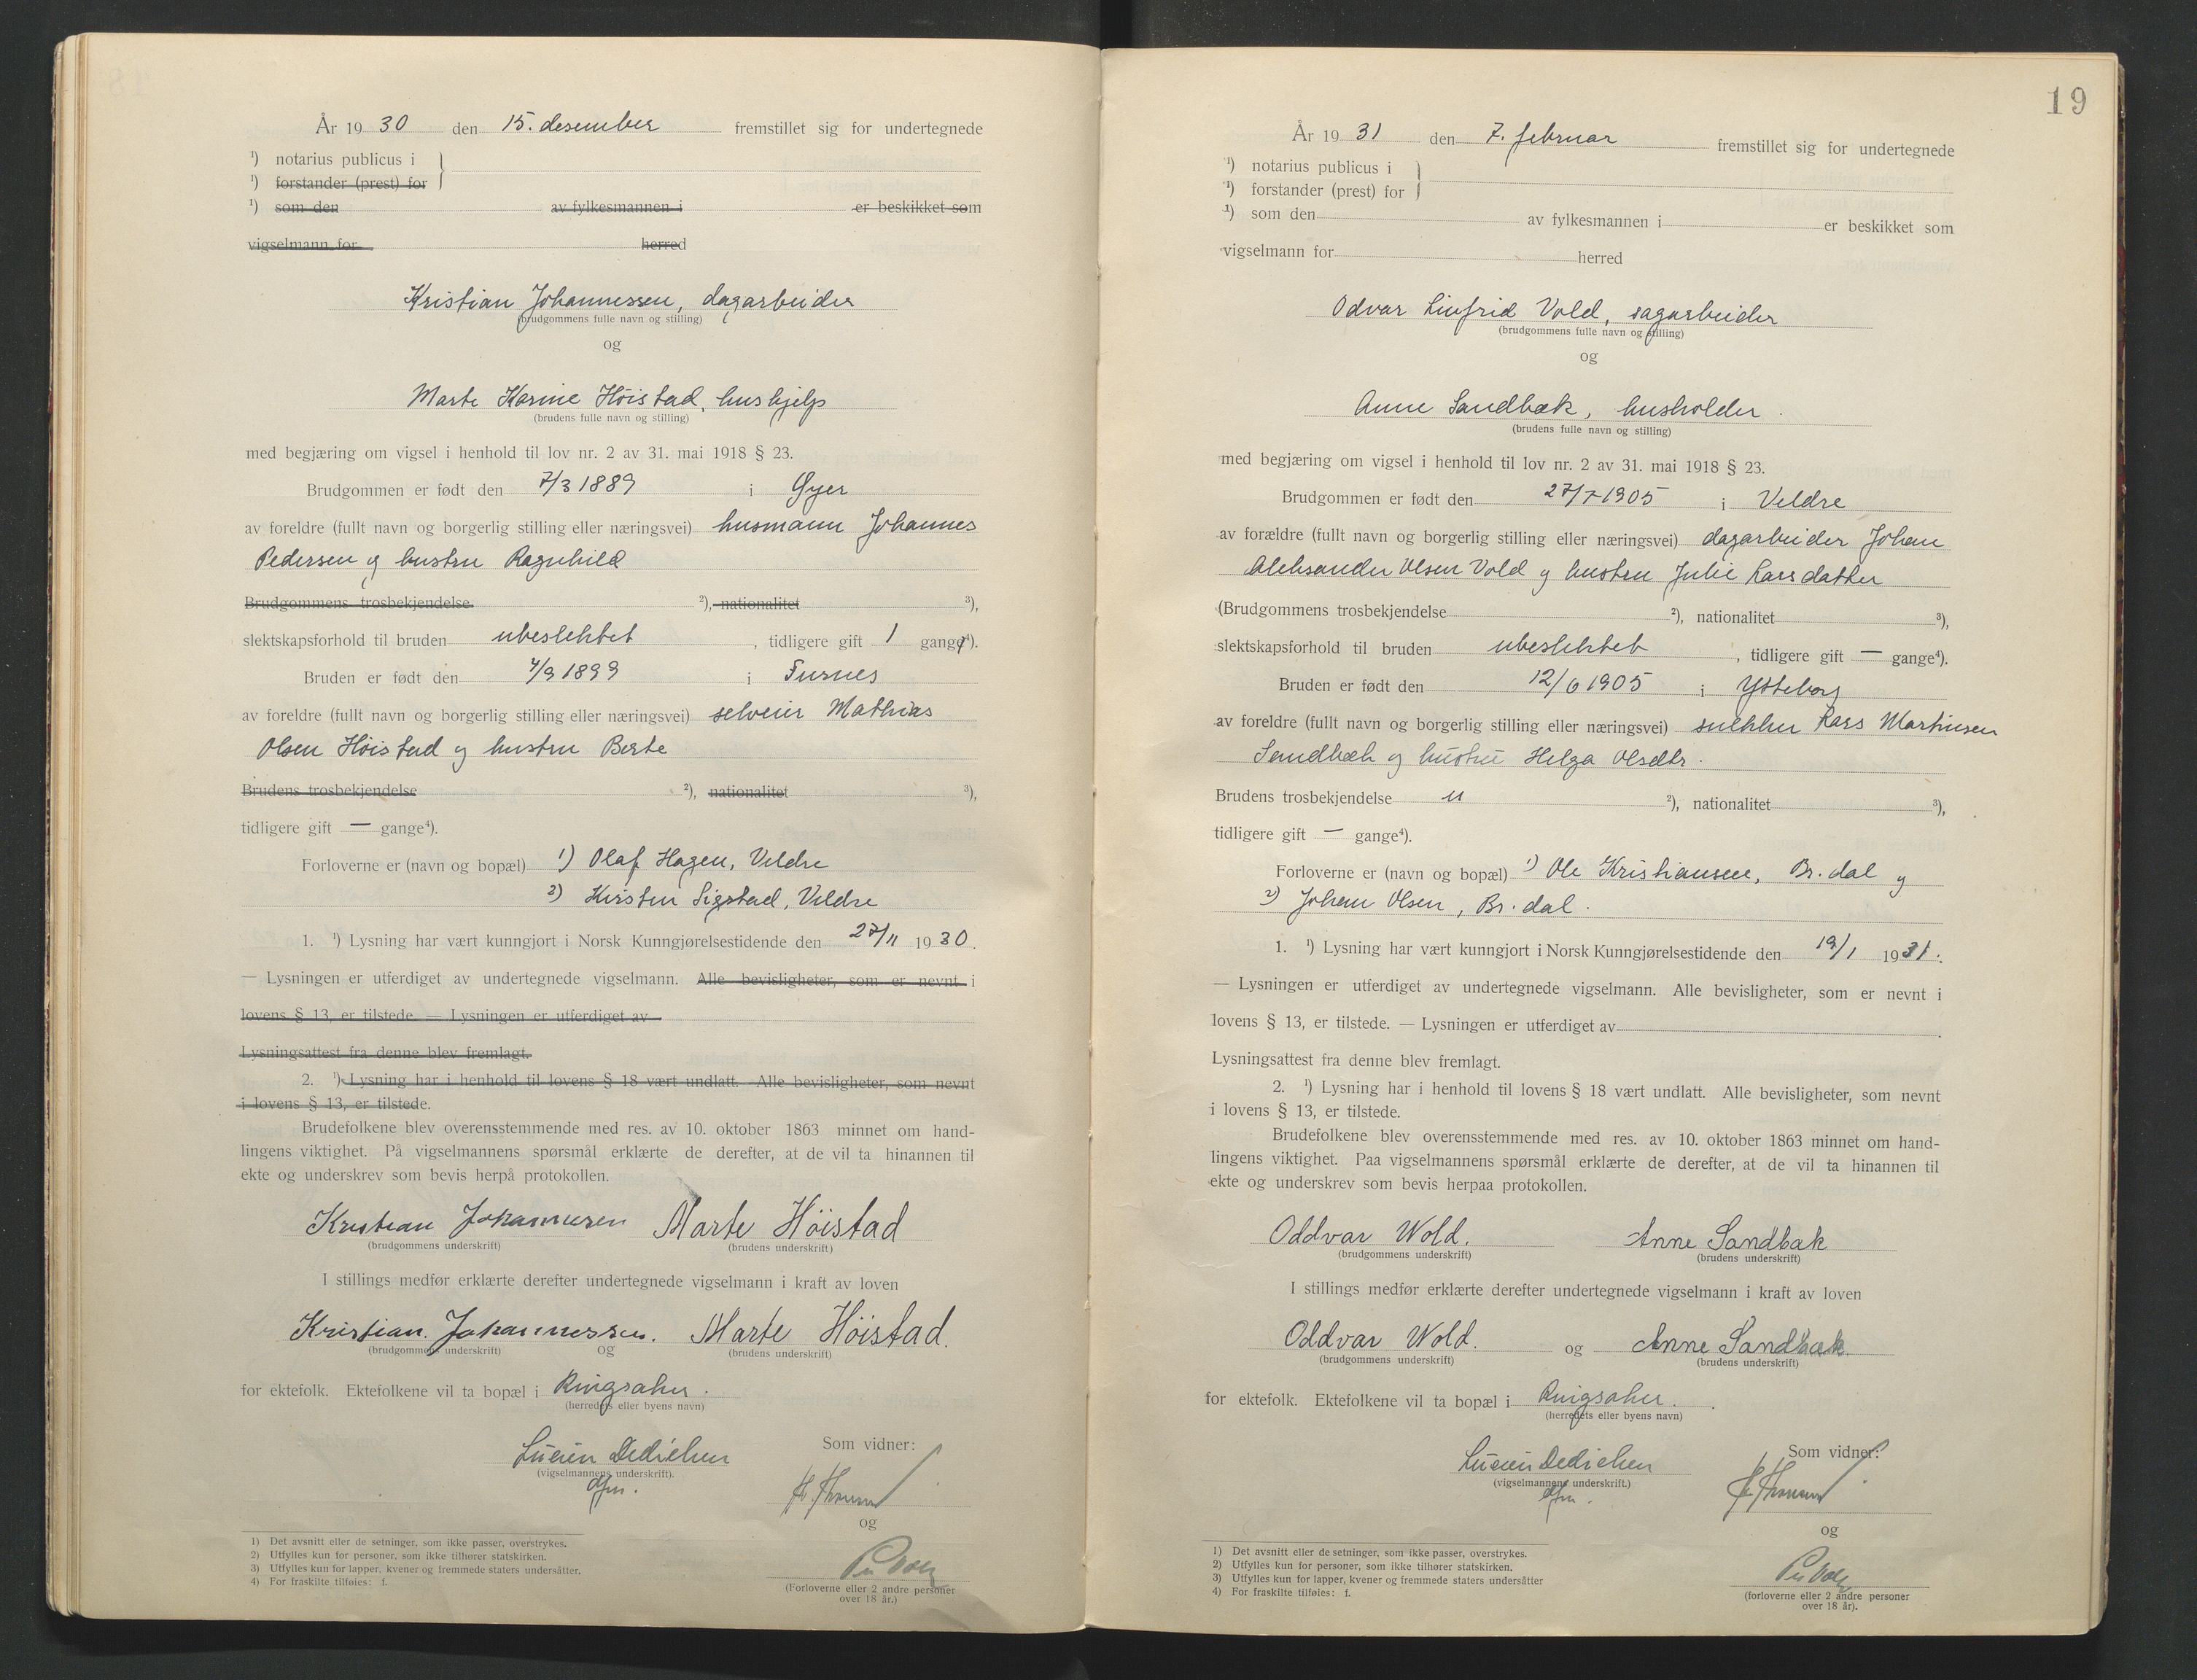 År 19 30 den 15. desember fremstillet sig for undertegnede
¹) notarius publicus i
¹) forstander (prest) for
¹) som den av fylkesmannen i er beskikket som
vigselmann for herred
Kristian Johannessen, dagarbeider
(brudgommens fulle navn og stilling)
og
Marte Karine Höistad, hushjelp
(brudens fulle navn og stilling)
med begjæring om vigsel i henhold til lov nr. 2 av 31. mai 1918 § 23.
Brudgommen er født den 7/3 1889 i Öyer
av foreldre (fullt navn og borgerlig stilling eller næringsvei) husmann Johannes
Pedersen og hustru Ragnhild
Brudgommens trosbekjendelse ²), nationalitet ³),
slektskapsforhold til bruden ubeslektet, tidligere gift 1 gange⁴).
Bruden er født den 4/9 1899 i Furnes
av foreldre (fullt navn og borgerlig stilling eller næringsvei) selveier Mathias
Olsen Höistad og hustru Berte
Brudens trosbekjendelse ²), nationalitet ³),
tidligere gift — gange⁴).
Forloverne er (navn og bopæl) 1) Olaf Hagen, Veldre
2) Kirsten Sigstad, Veldre
1. ¹) Lysning har vært kunngjort i Norsk Kunngjørelsestidende den 27/11 1930.
— Lysningen er utferdiget av undertegnede vigselmann. Alle bevisligheter, som er nevnt i
lovens § 13, er tilstede. — Lysningen er utferdiget av
Lysningsattest fra denne blev fremlagt.
2. ¹) Lysning har i henhold til lovens § 18 vært undlatt. Alle bevisligheter, som nevnt
i lovens § 13, er tilstede.
Brudefolkene blev overensstemmende med res. av 10. oktober 1863 minnet om hand-
lingens viktighet. På vigselmannens spørsmål erklærte de derefter, at de vil ta hinannen til
ekte og underskrev som bevis herpå protokollen.
Kristian Johannesen Marte Höistad
(brudgommens underskrift) (brudens underskrift)
I stillings medfør erklærte derefter undertegnede vigselmann i kraft av loven
Kristian. Johannessen. Marte Höistad.
(brudgommens underskrift) og (brudens underskrift)
for ektefolk. Ektefolkene vil ta bopæl i Ringsaker.
(herredets eller byens navn)
Som vidner:
Lucien Dedichen
(vigselmannens underskrift).
dfm.
og
(Forloverne eller 2 andre personer
over 18 år.)
1) Det avsnitt eller de setninger, som ikke passer, overstrykes.
2) Utfylles kun for personer, som ikke tilhører statskirken.
3) Utfylles kun for lapper, kvener og fremmede staters undersåtter.
4) For fraskilte tilføies: f.
19
År 19 31 den 7. februar fremstillet sig for undertegnede
¹) notarius publicus i
¹) forstander (prest) for
¹) som den av fylkesmannen i er beskikket som
vigselmann for herred
Odvar Linfrid Vold, sagarbeider
(brudgommens fulle navn og stilling)
og
Anne Sandbæk, husholder.
(brudens fulle navn og stilling)
med begjæring om vigsel i henhold til lov nr. 2 av 31. mai 1918 § 23.
Brudgommen er født den 27/7 1905 i Veldre
av forældre (fullt navn og borgerlig stilling eller næringsvei) dagarbeider Johan
Aleksander Olsen Vold og hustru Julie Larsdatter
(Brudgommens trosbekjendelse ²), nationalitet ³),
slektskapsforhold til bruden ubeslektet, tidligere gift — gange⁴).
Bruden er født den 12/6 1905 i Ytteborg
av foreldre (fullt navn og borgerlig stilling eller næringsvei) snekker Lars Martinsen
Sandbæk og hustru Helga Olsdtr.
Brudens trosbekjendelse " ²), nationalitet ³),
tidligere gift — gange⁴).
Forloverne er (navn og bopæl) 1) Ole Kristiansen, Br.dal og
2) Johan Olsen, Br.dal.
1. ¹) Lysning har vært kunngjort i Norsk Kunngjørelsestidende den 19/1 1931.
— Lysningen er utferdiget av undertegnede vigselmann. Alle bevisligheter, som er nevnt i
lovens § 13, er tilstede. — Lysningen er utferdiget av
Lysningsattest fra denne blev fremlagt.
2. ¹) Lysning har i henhold til lovens § 18 vært undlatt. Alle bevisligheter, som nevnt
i lovens § 13, er tilstede.
Brudefolkene blev overensstemmende med res. av 10. oktober 1863 minnet om hand-
lingens viktighet. Paa vigselmannens spørsmål erklærte de derefter, at de vil ta hinannen til
ekte og underskrev som bevis herpaa protokollen.
Oddvar Wold. Anne Sandbak
(brudgommens underskrift) (brudens underskrift)
I stillings medfør erklærte derefter undertegnede vigselmann i kraft av loven
Oddvar Wold. og Anne Sandbæk.
(brudgommens underskrift) (brudens underskrift)
for ektefolk. Ektefolkene vil ta bopæl i Ringsaker.
(herredets eller byens navn)
Som vidner:
Lucien Dedichen
(vigselmannens underskrift.)
dfm.
og
(forloverne eller 2 andre personer
over 18 år).
1) Det avsnitt eller de setninger, som ikke passer, overstrykes.
2) Utfylles kun for personer, som ikke tilhører statskirken.
3) Utfylles kun for lapper, kvener og fremmede staters undersåtter
4) For fraskilte tilføies: f.